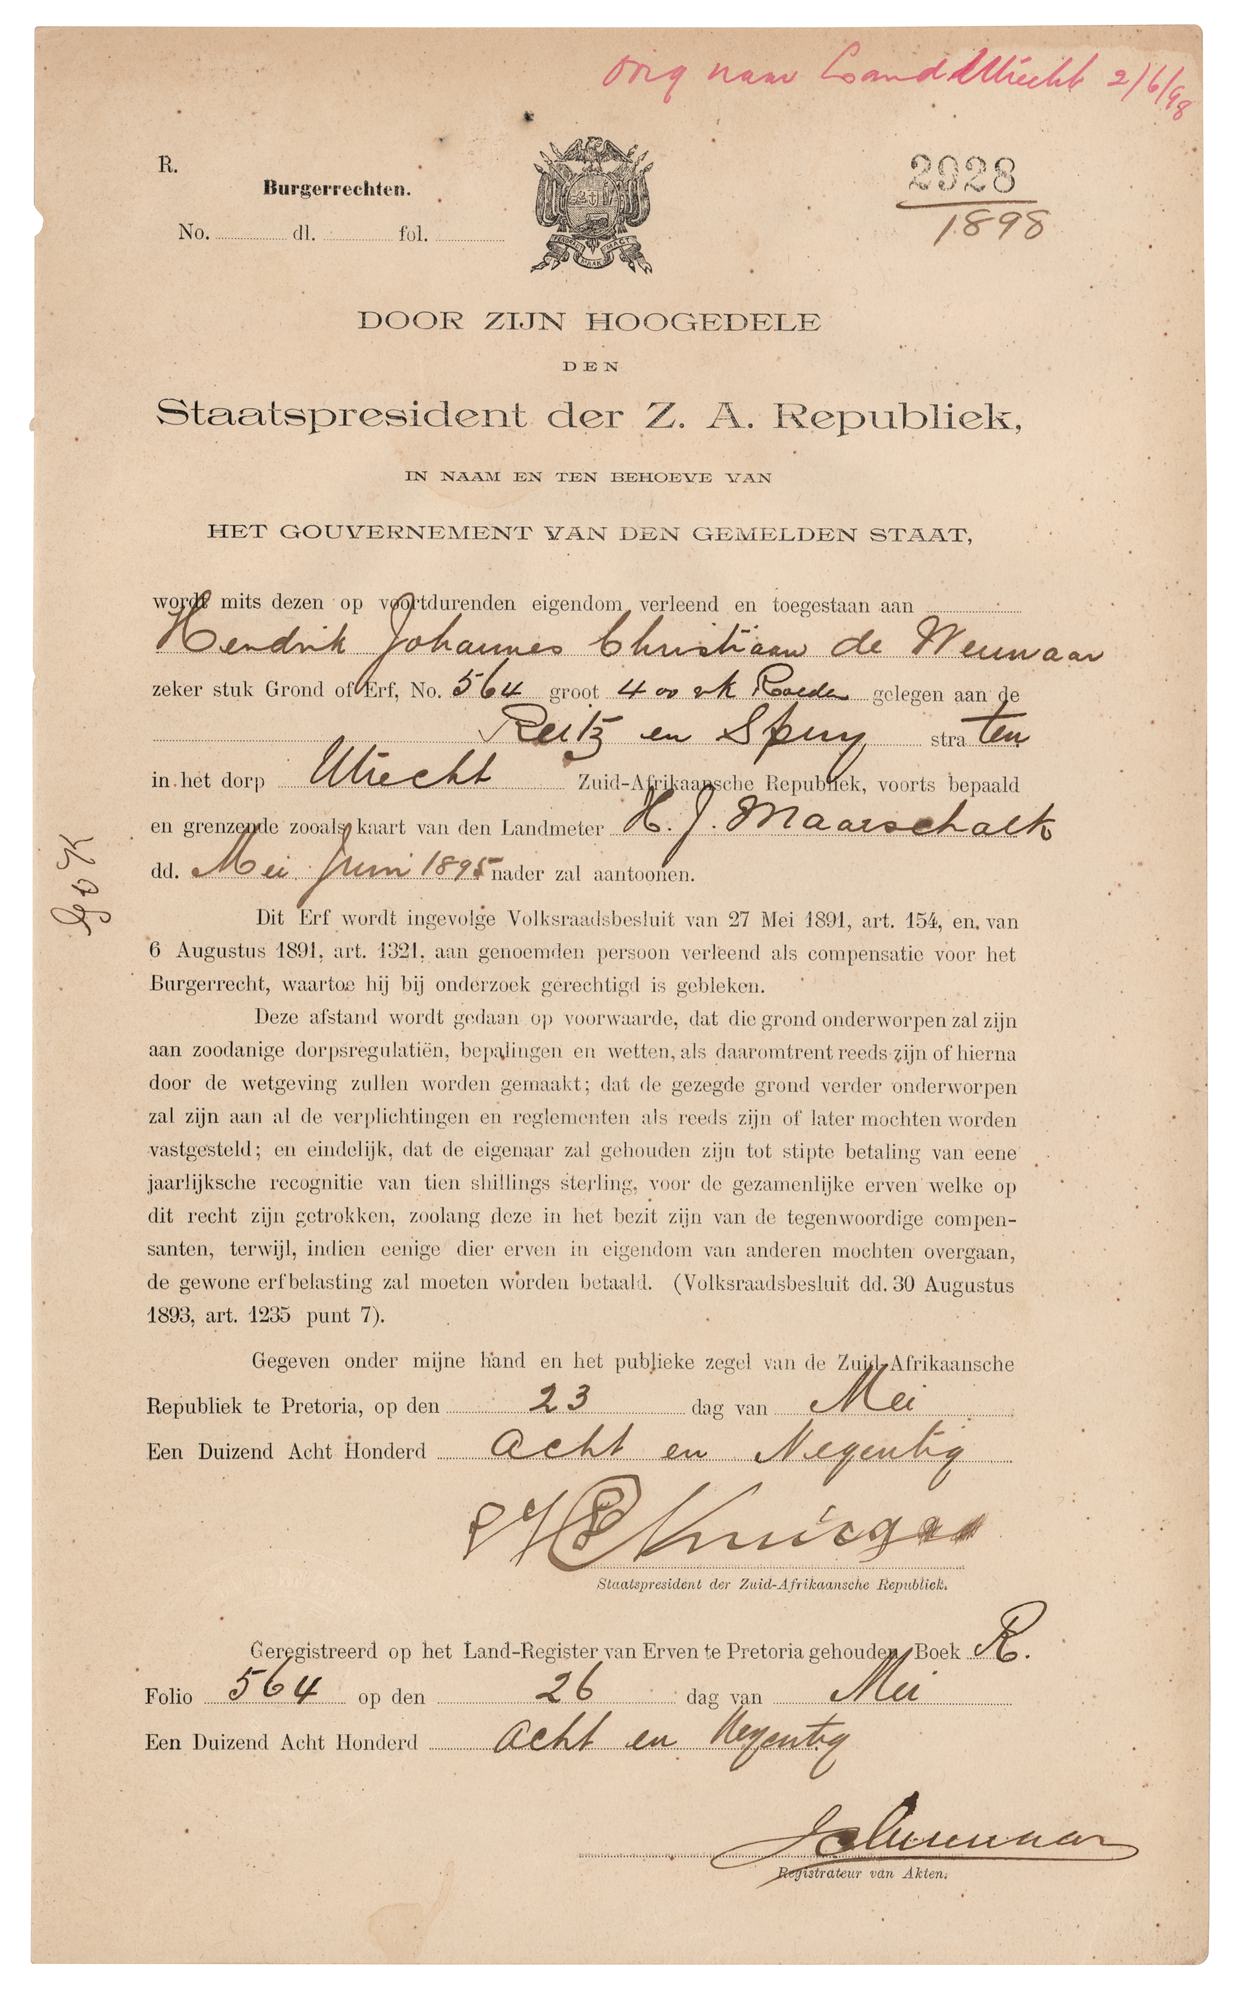 Orig naar Landd Utrecht 2/6/98
R.
Burgerrechten.
No. dl. fol.
2928
1898
EENDRACHT MAAKT MAGT
DOOR ZIJN HOOGEDELE
DEN
Staatspresident der Z. A. Republiek,
IN NAAM EN TEN BEHOEVE VAN
HET GOUVERNEMENT VAN DEN GEMELDEN STAAT,
wordt mits dezen op voortdurenden eigendom verleend en toegestaan aan
Hendrik Johannes Christiaan de Wennaar
zeker stuk Grond of Erf, No. 564 groot 400 vk Roeden gelegen aan de
Reitz en Spuy straten
in het dorp Utrecht Zuid-Afrikaansche Republiek, voorts bepaald
en grenzende zooals kaart van den Landmeter H. J. Maarschalk
dd. Mei Juni 1895 nader zal aantoonen.
Dit Erf wordt ingevolge Volksraadsbesluit van 27 Mei 1891, art. 154, en van
6 Augustus 1891, art. 1321, aan genoemden persoon verleend als compensatie voor het
Burgerrecht, waartoe hij bij onderzoek gerechtigd is gebleken.
Deze afstand wordt gedaan op voorwaarde, dat die grond onderworpen zal zijn
aan zoodanige dorpsregulatiën, bepalingen en wetten, als daaromtrent reeds zijn of hierna
door de wetgeving zullen worden gemaakt; dat de gezegde grond verder onderworpen
zal zijn aan al de verplichtingen en reglementen als reeds zijn of later mochten worden
vastgesteld; en eindelijk, dat de eigenaar zal gehouden zijn tot stipte betaling van eene
jaarlijksche recognitie van tien shillings sterling, voor de gezamenlijke erven welke op
dit recht zijn getrokken, zoolang deze in het bezit zijn van de tegenwoordige compen-
santen, terwijl, indien eenige dier erven in eigendom van anderen mochten overgaan,
de gewone erfbelasting zal moeten worden betaald. (Volksraadsbesluit dd. 30 Augustus
1893, art. 1235 punt 7).
Gegeven onder mijne hand en het publieke zegel van de Zuid-Afrikaansche
Republiek te Pretoria, op den 23 dag van Mei
Een Duizend Acht Honderd acht en Negentig
SJP Kruger
Staatspresident der Zuid-Afrikaansche Republiek.
Geregistreerd op het Land-Register van Erven te Pretoria gehouden Boek R.
Folio 564 op den 26 dag van Mei
Een Duizend Acht Honderd acht en Negentig
Registrateur van Akten.